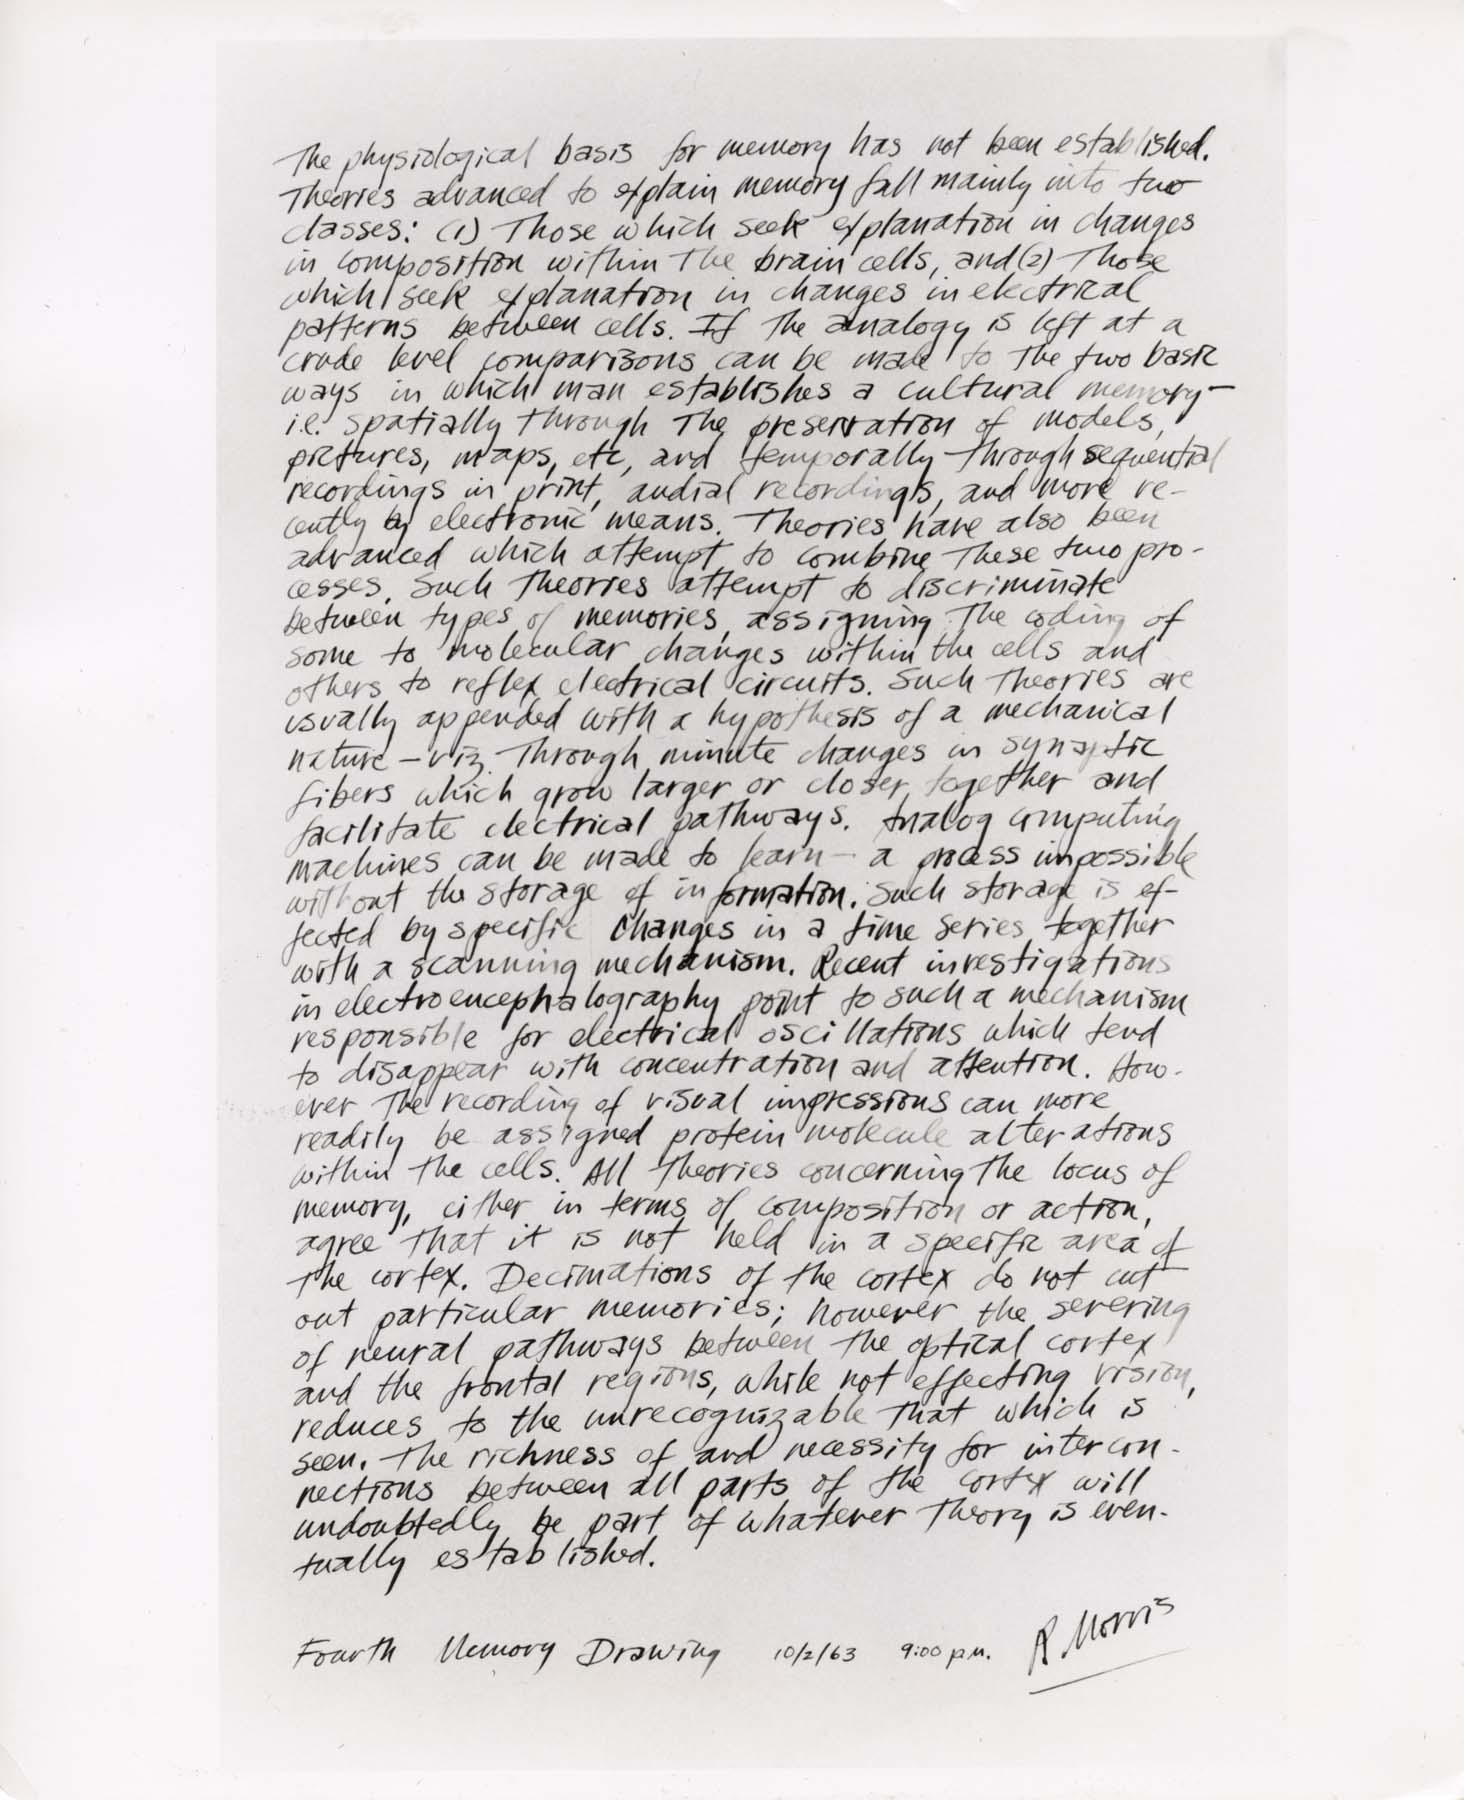 The physiological basis for memory has not been established.
Theories advanced to explain memory fall mainly into two
classes: (1) Those which seek explanation in changes
in composition within the brain cells, and (2) Those
which seek explanation in changes in electrical
patterns between cells. If the analogy is left at a
crude level comparisons can be made to the two basic
ways in which man establishes a cultural memory—
i.e. spatially through the preservation of models,
pictures, maps, etc, and temporally through sequential
recordings in print, audial recordings, and more re-
cently by electronic means. Theories have also been
advanced which attempt to combine these two pro-
cesses. Such theories attempt to discriminate
between types of memories, assigning the coding of
some to molecular changes within the cells and
others to reflex electrical circuits. Such theories are
usually appended with a hypothesis of a mechanical
nature – viz. through minute changes in synaptic
fibers which grow larger or closer together and
facilitate electrical pathways. Analog computing
machines can be made to learn – a process impossible
without the storage of information. Such storage is ef-
fected by specific changes in a time series together
with a scanning mechanism. Recent investigations
in electroencephalography point to such a mechanism
responsible for electrical oscillations which tend
to disappear with concentration and attention. How-
ever the recording of visual impressions can more
readily be assigned protein molecule alterations
within the cells. All theories concerning the locus of
memory, either in terms of composition or action,
agree that it is not held in a specific area of
the cortex. Decimations of the cortex do not cut
out particular memories; however the severing
of neural pathways between the optical cortex
and the frontal regions, while not effecting vision,
reduces to the unrecognizable that which is
seen. The richness of and necessity for intercon-
nections between all parts of the cortex will
undoubtedly be part of whatever theory is even-
tually established.
Fourth Memory Drawing 10/2/63 9:00 p.m. R. Morris